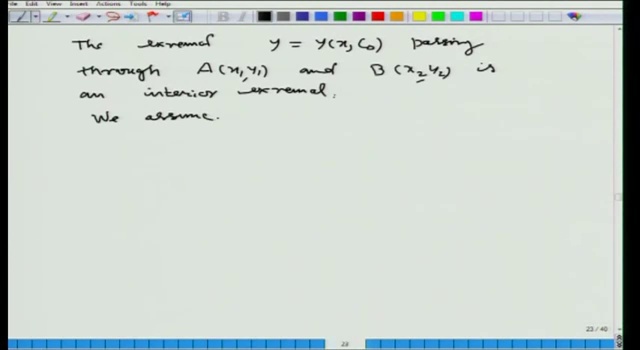 File Edit View Insert Actions Tools Help
The exremal y = y(x, C0) passing
through A(x1, y1) and B(x2, y2) is
an interior exremal.
We assume.
23 / 40
23